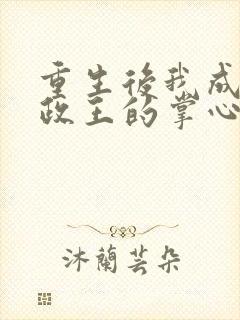 重生後我成
政王的掌心
沐蘭芸朵